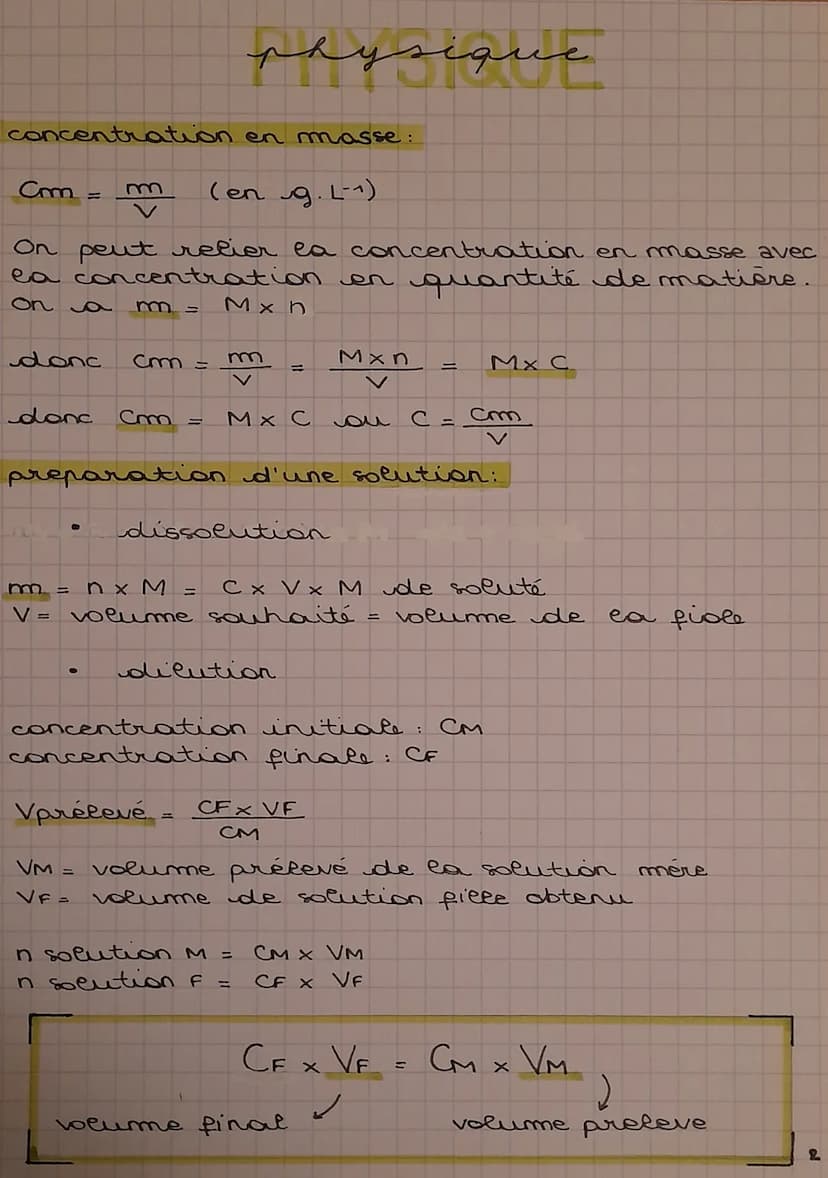 PHYSIQUE
physique
concentration en masse :
Cm = m/V (en g.L-1)
On peut relier la concentration en masse avec
la concentration en quantité de matière.
On a m = M x n
donc Cm = m/V = M x n/V = M x C
donc Cm = M x C ou C = Cm/V
preparation d'une solution :
• dissolution
m = n x M = C x V x M de soluté
V = volume souhaité = volume de la fiole
• dilution
concentration initiale : CM
concentration finale : CF
Vprélevé = CF x VF/CM
VM = volume prélevé de la solution mére
VF = volume de solution fille obtenu
n solution M = CM x VM
n solution F = CF x VF
CF x VF = CM x VM
volume final volume preleve
2